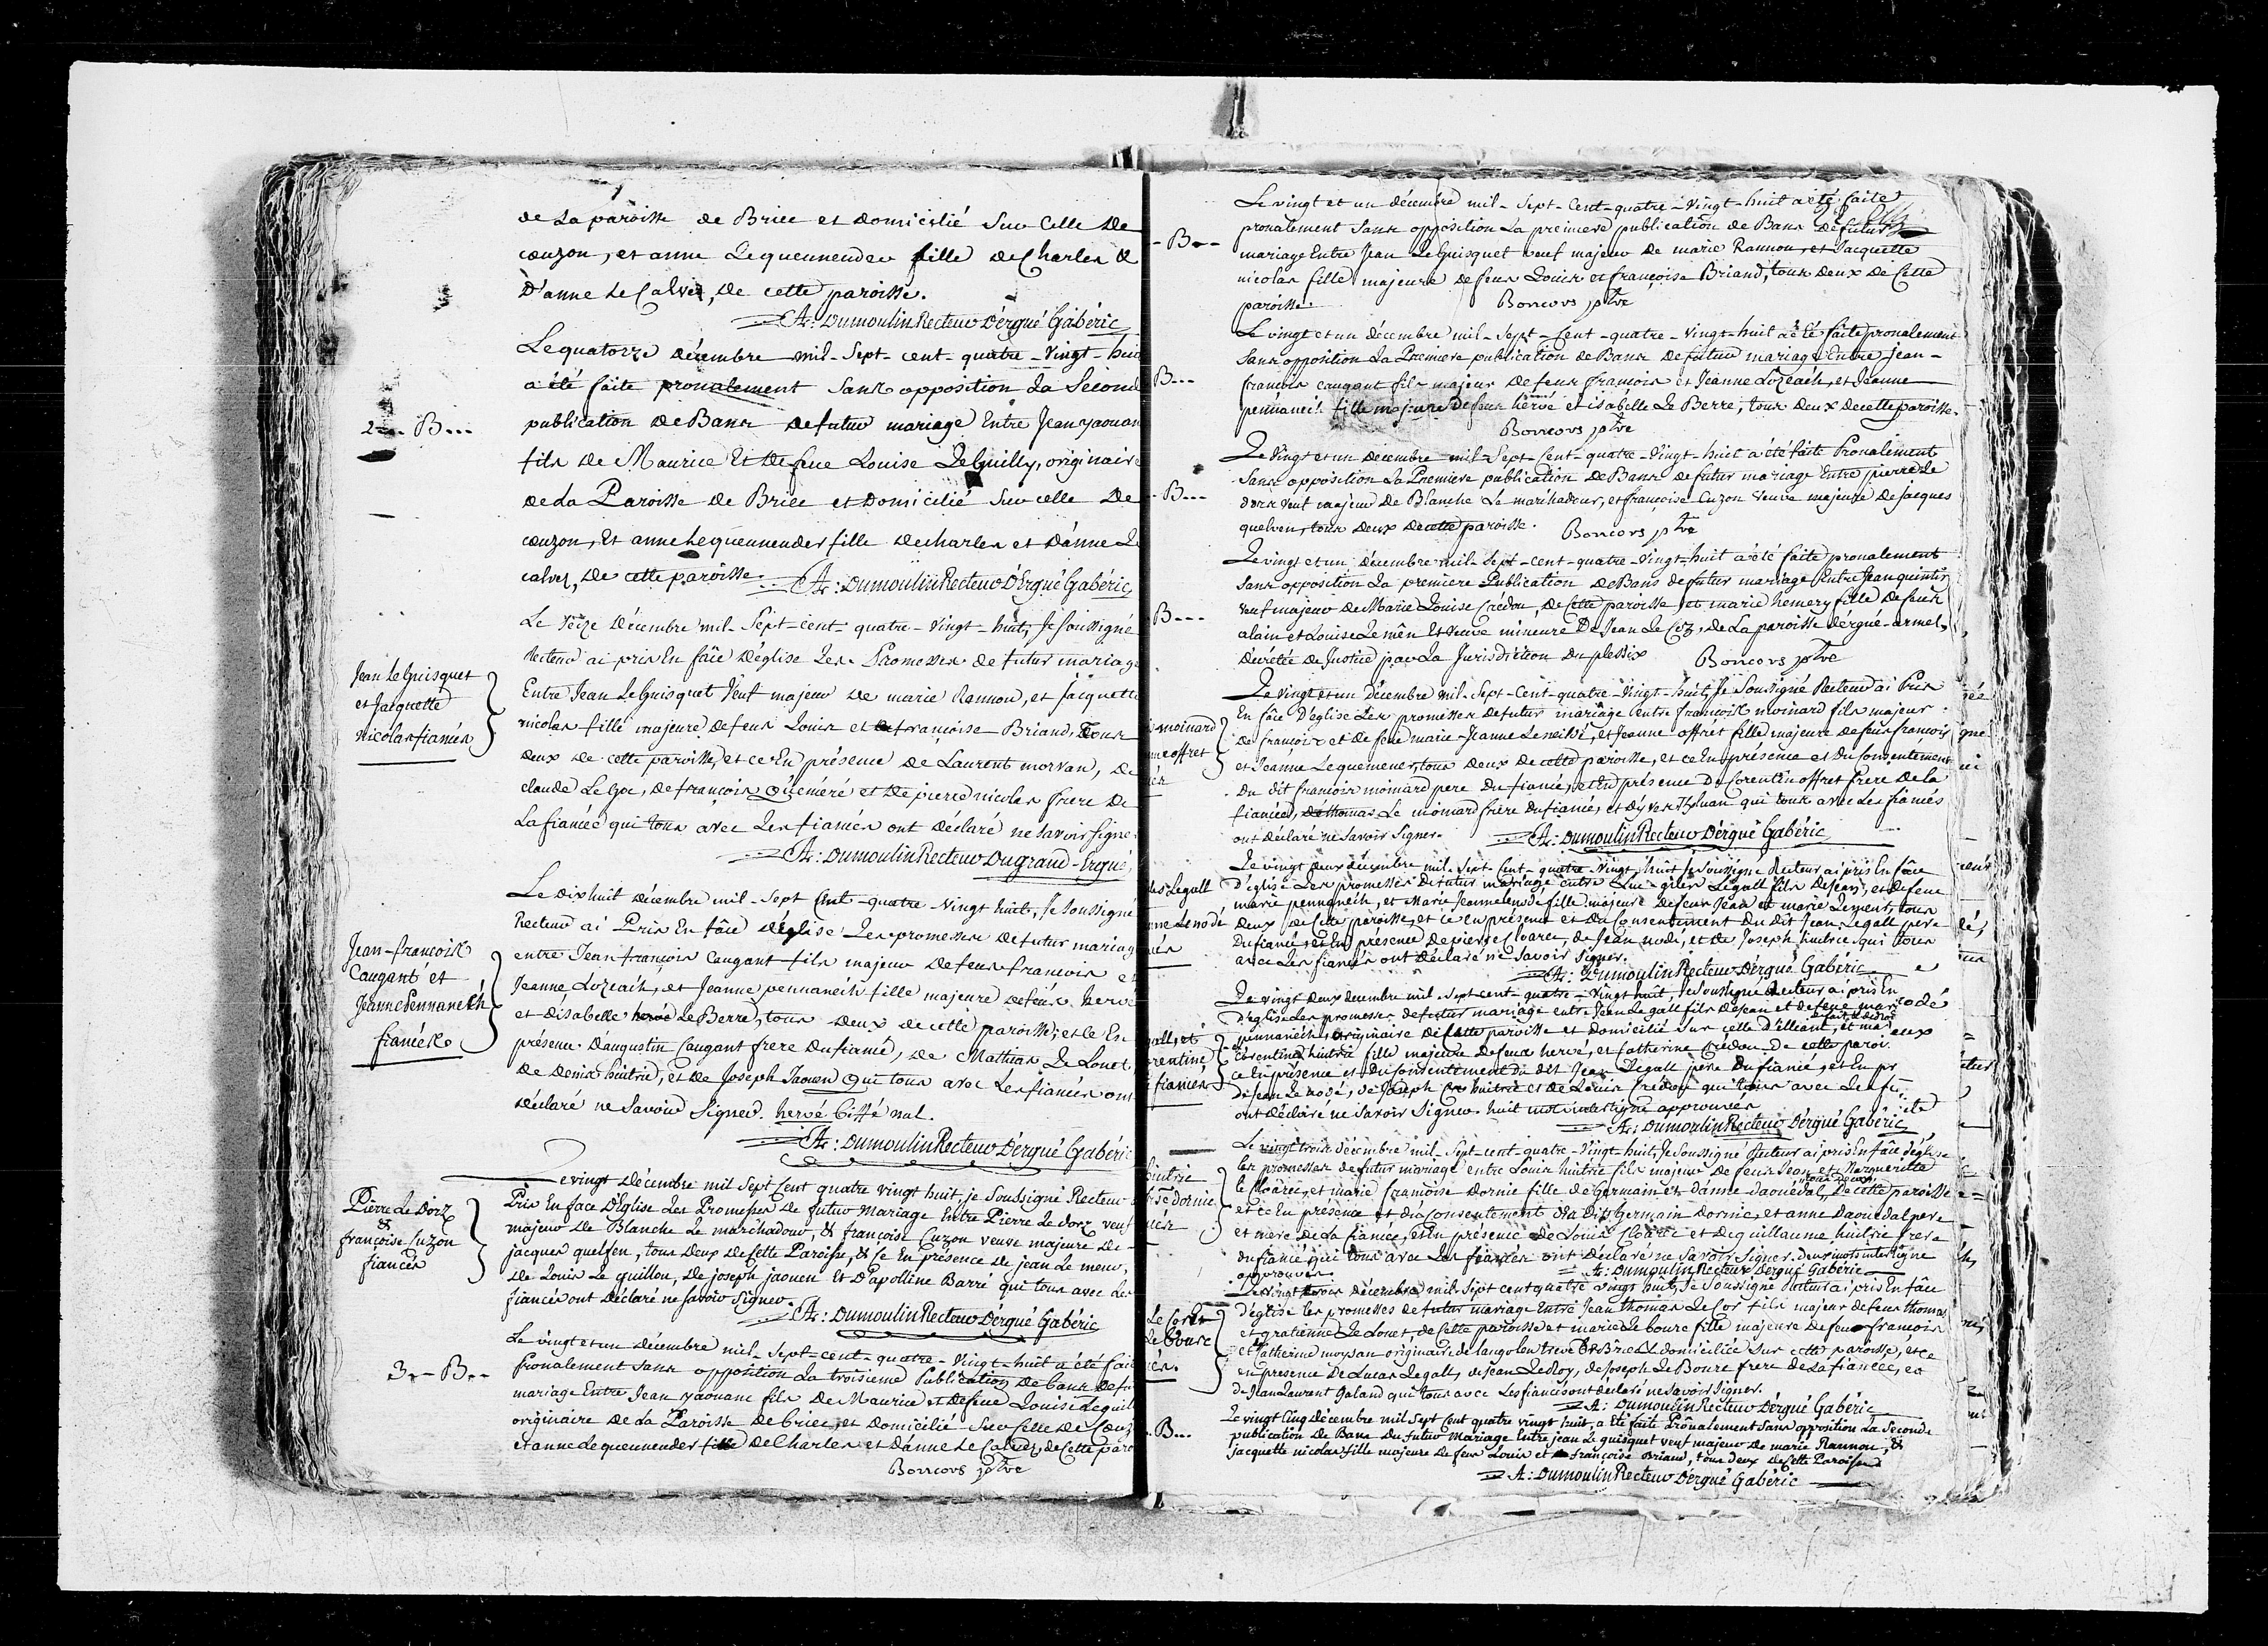 de La paroisse de Briec et domicilié sur Celle de
couzon, et anne Lequennender fille de Charles &
D'anne Le Calvez, de cette paroisse.
A: Dumoulin Recteur d'ergué Gabéric
2-- B---
Le quatorze décembre mil-Sept-cent-quatre-vingt-huit
a été faite pronalement sans opposition La Seconde
publication de Bans de futur mariage Entre Jean yaouan
fils de Maurice Et de feue Louise Le Guilly, originaire
de La Paroisse de Briec et domicilié sur celle de
couzon, Et anne Le quennender fille de charles et d'anne Le
calvez, de cette paroisse. A: Dumoulin Recteur d'Ergué Gabéric
Jean Le Guisquet
et Jacquette
nicolas fiancés
Le seize décembre mil-Sept-cent-quatre-vingt-huit, Je soussigné
Recteur ai pris En fâce d'église Les Promesses de futur mariage
Entre Jean Le Guisquet Veuf majeur de marie Rannou, et Jacquette
nicolas fille majeure de feus Louis et françoise Briand, Tous
deux de cette paroisse, et ce En présence de Laurent morvan, de
claude Le Goc, de françois Quéméré et de pierre nicolas frere de
La fiancée qui tous avec Les fiancés ont déclaré ne savoir signer
A: Dumoulin Recteur du grand-Ergué
Jean-francois
Caugant et
Jeanne Pennanech
fiancés
Le dix huit décembre mil-Sept Cent-quatre-vingt huit, Je soussigné
Recteur ai Pris En fâce d'église Les promesses de futur mariage
entre Jean françois Caugant fils majeur de feus francois et
Jeanne Lozeach, et Jeanne pennanech fille majeure de feus hervé
et d'isabelle hervé Le Berre, tous deux de cette paroisse; et ce En
présence d'augustin Caugant frere du fiancé, de Mathias Le Louet,
de Denis huitric, et de Joseph Jaouen Qui tous avec Les fiancés ont
déclaré ne savoir Signer. hervé biffé nul.
A: Dumoulin Recteur d'ergué Gabéric
Pierre Le Dorz
&
françoise Cuzon
fiancés
Le vingt décembre mil Sept Cent quatre vingt huit, je Soussigné Recteur
Pris En face d'Eglise Les Promesses de futur Mariage Entre Pierre Le dorz veuf
majeur de Blanche Le marchadour, & françoise Cuzon veuve majeure de
jacques quelfen, tous deux de Cette Paroisse, & ce En présence de jean Le meur,
de Louis Le guillou, de joseph jaouen Et d'apolline Barré qui tous avec Les
fiancés ont déclaré ne savoir Signer. A: Dumoulin Recteur d'ergué Gabéric
3-- B--
Le vingt et un décembre mil-Sept-cent-quatre-vingt-huit a été faite
pronalement sans opposition La troisieme Publication de bans de fu
mariage Entre Jean yaouanc fils de Maurice et de feue Louise Leguil
originaire de La Paroisse de briec, et domicilié sur Celle de Couz
et anne Lequennender fille de Charles et d'anne Le Calvez, de Cette paro
Boncors ptre
- B--
Le vingt et un décembre mil-Sept-Cent-quatre-vingt-huit a été faite
pronalement sans opposition La premiere publication de Bans de futur
mariage Entre Jean Le Guisquet veuf majeur de marie Rannou, et Jacquette
nicolas fille majeure de feus Louis et françoise Briand, tous deux de Cette
paroisse. Boncors ptre
B---
Le vingt et un décembre mil-Sept-Cent-quatre-vingt-huit a été faite pronalement
Sans opposition La Premiere publication de Bans de futur mariage Entre jean-
francois caugant fils majeur de feus francois et Jeanne Lozeach, et Jeanne
pennanech fille majeure de feus hervé et isabelle Le Berre, tous deux de cette paroisse.
Boncors ptre
- B---
Le Vingt et un decembre mil-Sept-Cent-quatre-vingt-huit a été faite Pronalement
Sans opposition La Premiere publication de Bans de futur mariage Entre pierre Le
dorz veuf majeur de Blanche Le marchadour, et françoise Cuzon veuve majeure de jacques
quelven, tous deux de cette paroisse. Boncors ptre
B---
Le vingt et un décembre mil-Sept-Cent-quatre-vingt-huit a été faite pronalement
Sans opposition La premiere Publication de Bans de futur mariage Entre Jean quintin
veuf majeur de Marie Louise Crédou, de Cette paroisse et marie hemery fille de feus
alain et Louise Le mên Et veuve mineure De Jean Le Coz, de La paroisse d'ergué-armel,
Décrétée de Justice par La Jurisdiction du plessix Boncors ptre
moinard
ne offret
és
Le vingt et un décembre mil-Sept-Cent-quatre-vingt-huit, Je Soussigné Recteur ai Pris
En fâce d'église Les promesses de futur mariage entre francois moinard fils majeur
de francois et de feue marie-Jeanne , et Jeanne offret fille majeure de feus francois
et Jeanne Le quemener, tous deux de cette paroisse, et ce En présence et du Consentement
du dit francois moinard pere du fiancé, et En présence de Corentin offret frere de la
fiancée, de thomas Le moinard frère du fiancé, et d'yves qui tous avec Les fiancés
ont déclaré ne Savoir Signer. A: Dumoulin Recteur d'ergué Gabéric
Legall
ne Lenodé
és
Le vingt deux décembre mil-Sept-Cent-quatre-vingt-huit Je Soussigné Recteur ai pris En fâce
d'église Les promesses de futur mariage entre Luc-giles Legall fils de Jean, et de feue
marie pennanech, et Marie Jeanne Lenodé fille majeure de feus Jean et marie , tous
deux de Cette paroisse, et ce En présence et du Consentement du dit Jean Legall pere
du fiancé, et En présence de pierre Cloarec, de Jean nodé, et de Joseph huitric qui tous
avec Les fiancés ont déclaré ne Savoir Signer.
A: Dumoulin Recteur d'ergué Gabéric
gall, et
rentine
fiancés
Le vingt deux decembre mil-Sept cent-quatre-vingt huit, Je Soussigné Recteur ai pris En
d'église Les promesses de futur mariage entre Jean Le gall fils de Jean et de feue marie
pennanech, originaire de Cette paroisse et domicilié sur celle d'elliant, et ma
corentine huitric fille majeure de feus hervé, et Catherine Crédou de cette paroi
ce En présence et du Consentement du dit Jean Legall pere du fiancé, et En pr
de Jean Le nodé, de Joseph huitric et de Louis Crédou qui tous avec Les fi
ont déclaré ne Savoir Signer. huit mots interligne approuvés
A: Dumoulin Recteur d'ergué Gabéric
huitric
se dornic
és
Le vingt trois décembre mil-Sept cent-quatre-vingt-huit, Je Soussigné Recteur ai pris En fâce d'église
les promesses de futur mariage entre Louis huitric fils majeur de feus Jean et Marguerite
tous deux
le Cloarec, et marie françoise dornic fille de Germain et d'anne daouédal, De cette paroisse
et ce En présence et du Consentement du dit Germain dornic, et anne daouedal pere
et mere de la fiancée, et En présence de Louis Cloarec et de guillaume huitric frere
du fiancé qui tous avec Les fiancés ont déclaré ne Savoir Signer. deux mots interligne
approuvés A: Dumoulin Recteur d'ergué Gabéric
Le Cor et
Le boure
és.
Le vingt trois décembre mil Sept cent quatre vingt huit, Je Soussigné Recteur ai pris En fâce
d'église les promesses de futur mariage Entre Jean thomas Le Cor fils majeur de feus thomas
et gratienne Le Louet, de Cette paroisse et marie Le boure fille majeure de feu francois
et Catherine moysan originaire de Langolen treve de Briec domiciliée sur cette paroisse, et ce
en présence De Lucas Legall, de jean , de Joseph Le Boure frere de La fiancée, et
de Jean Laurent Galand qui tous avec Les fiancés ont déclaré ne Savoir Signer.
A: Dumoulin Recteur d'ergué Gabéric
- B---
Le vingt Cinq Décembre mil Sept Cent quatre vingt huit, a Eté faite Prônalement Sans opposition La Seconde
publication de Bans du futur Mariage Entre jean Le guisquet veuf majeur de marie Rannou, &
jacquette nicolas fille majeure de feus Louis et françoise Briand, tous deux de Cette Paroisse
A: Dumoulin Recteur d'ergué Gabéric